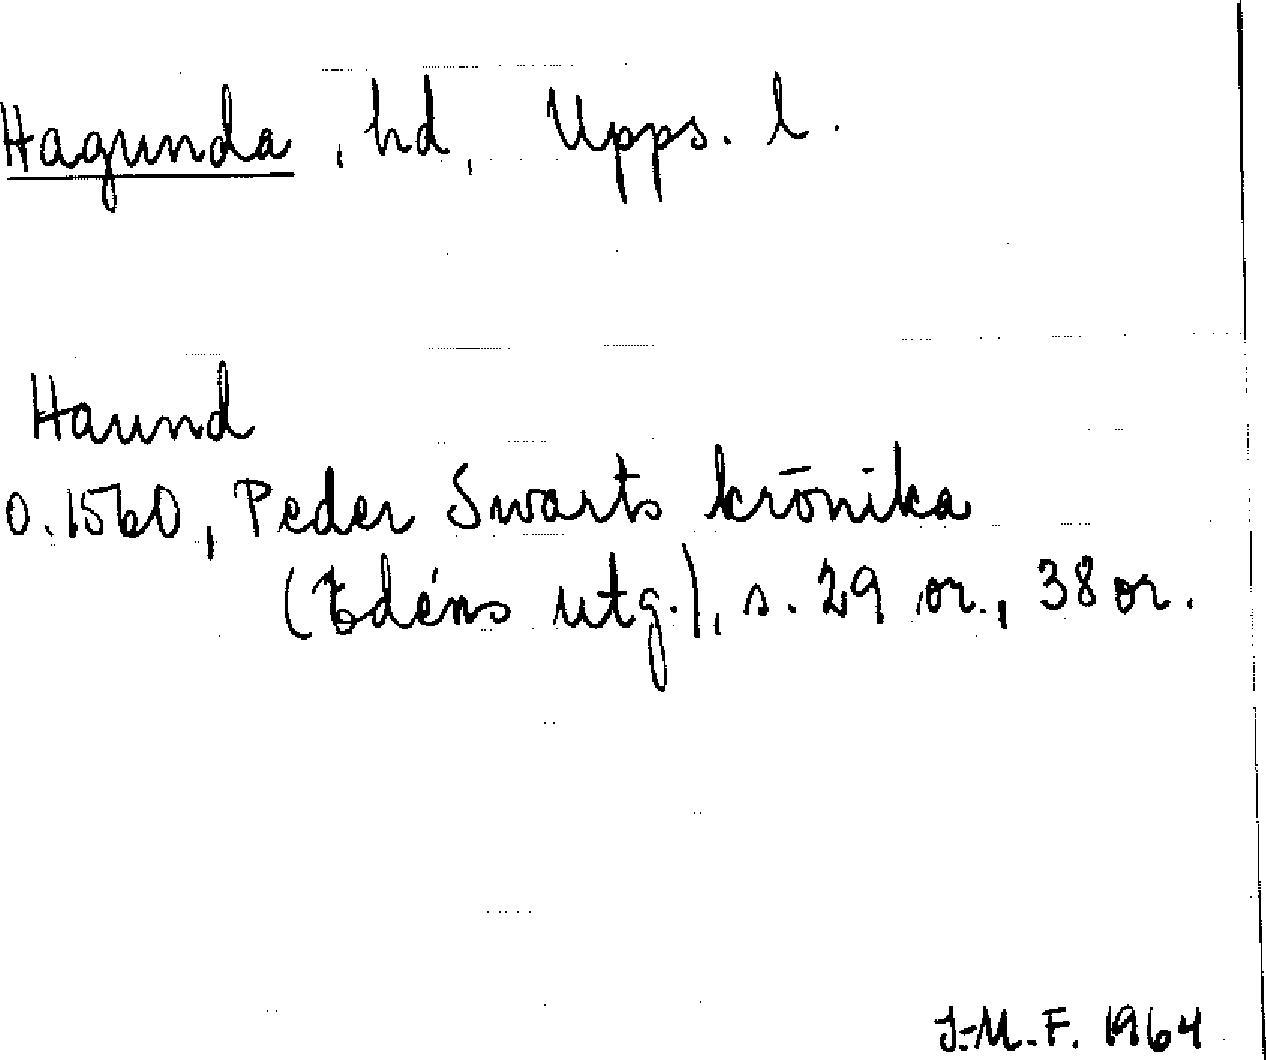 Hagunda, hd, Upps. l.
Haund
o. 1560, Peder Swarts krönika
(Edéns utg.), s. 29 or., 38 or.
J.-M. F. 1964